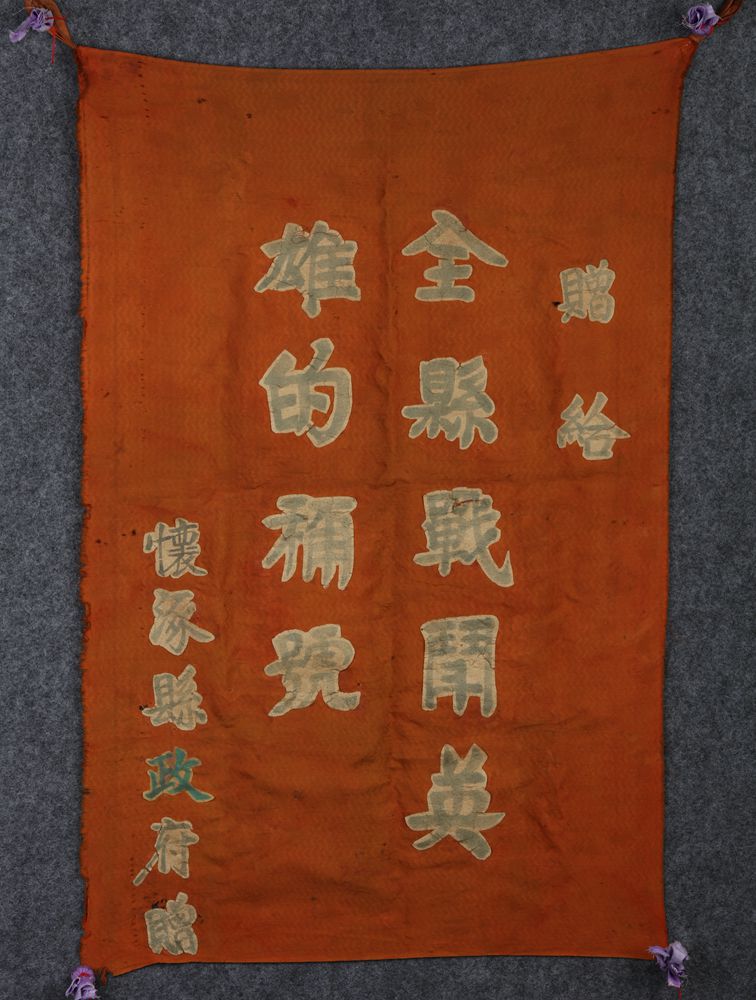 贈給
全縣戰鬥英
雄的稱號
懷涿縣政府贈